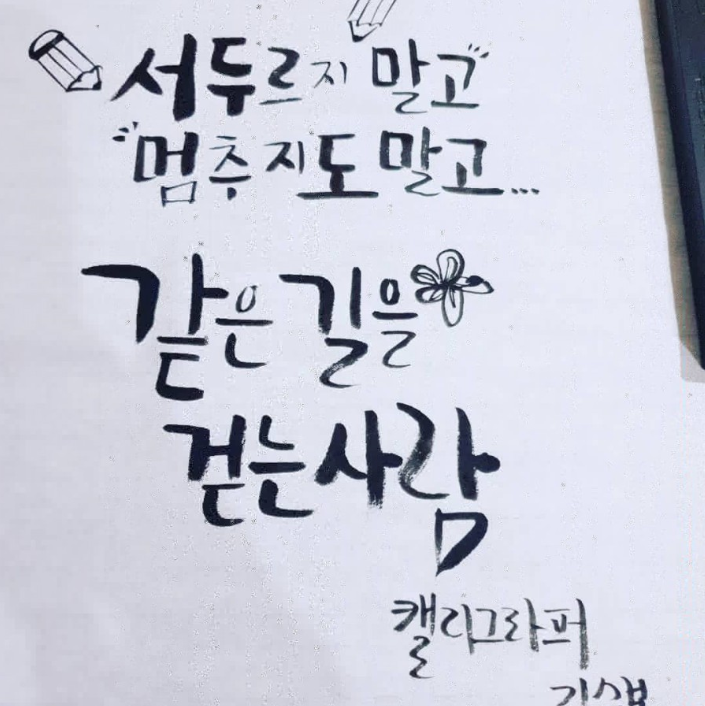 서두르지 말고
멈추지도 말고...
같은 길을
걷는 사람
캘리그라퍼